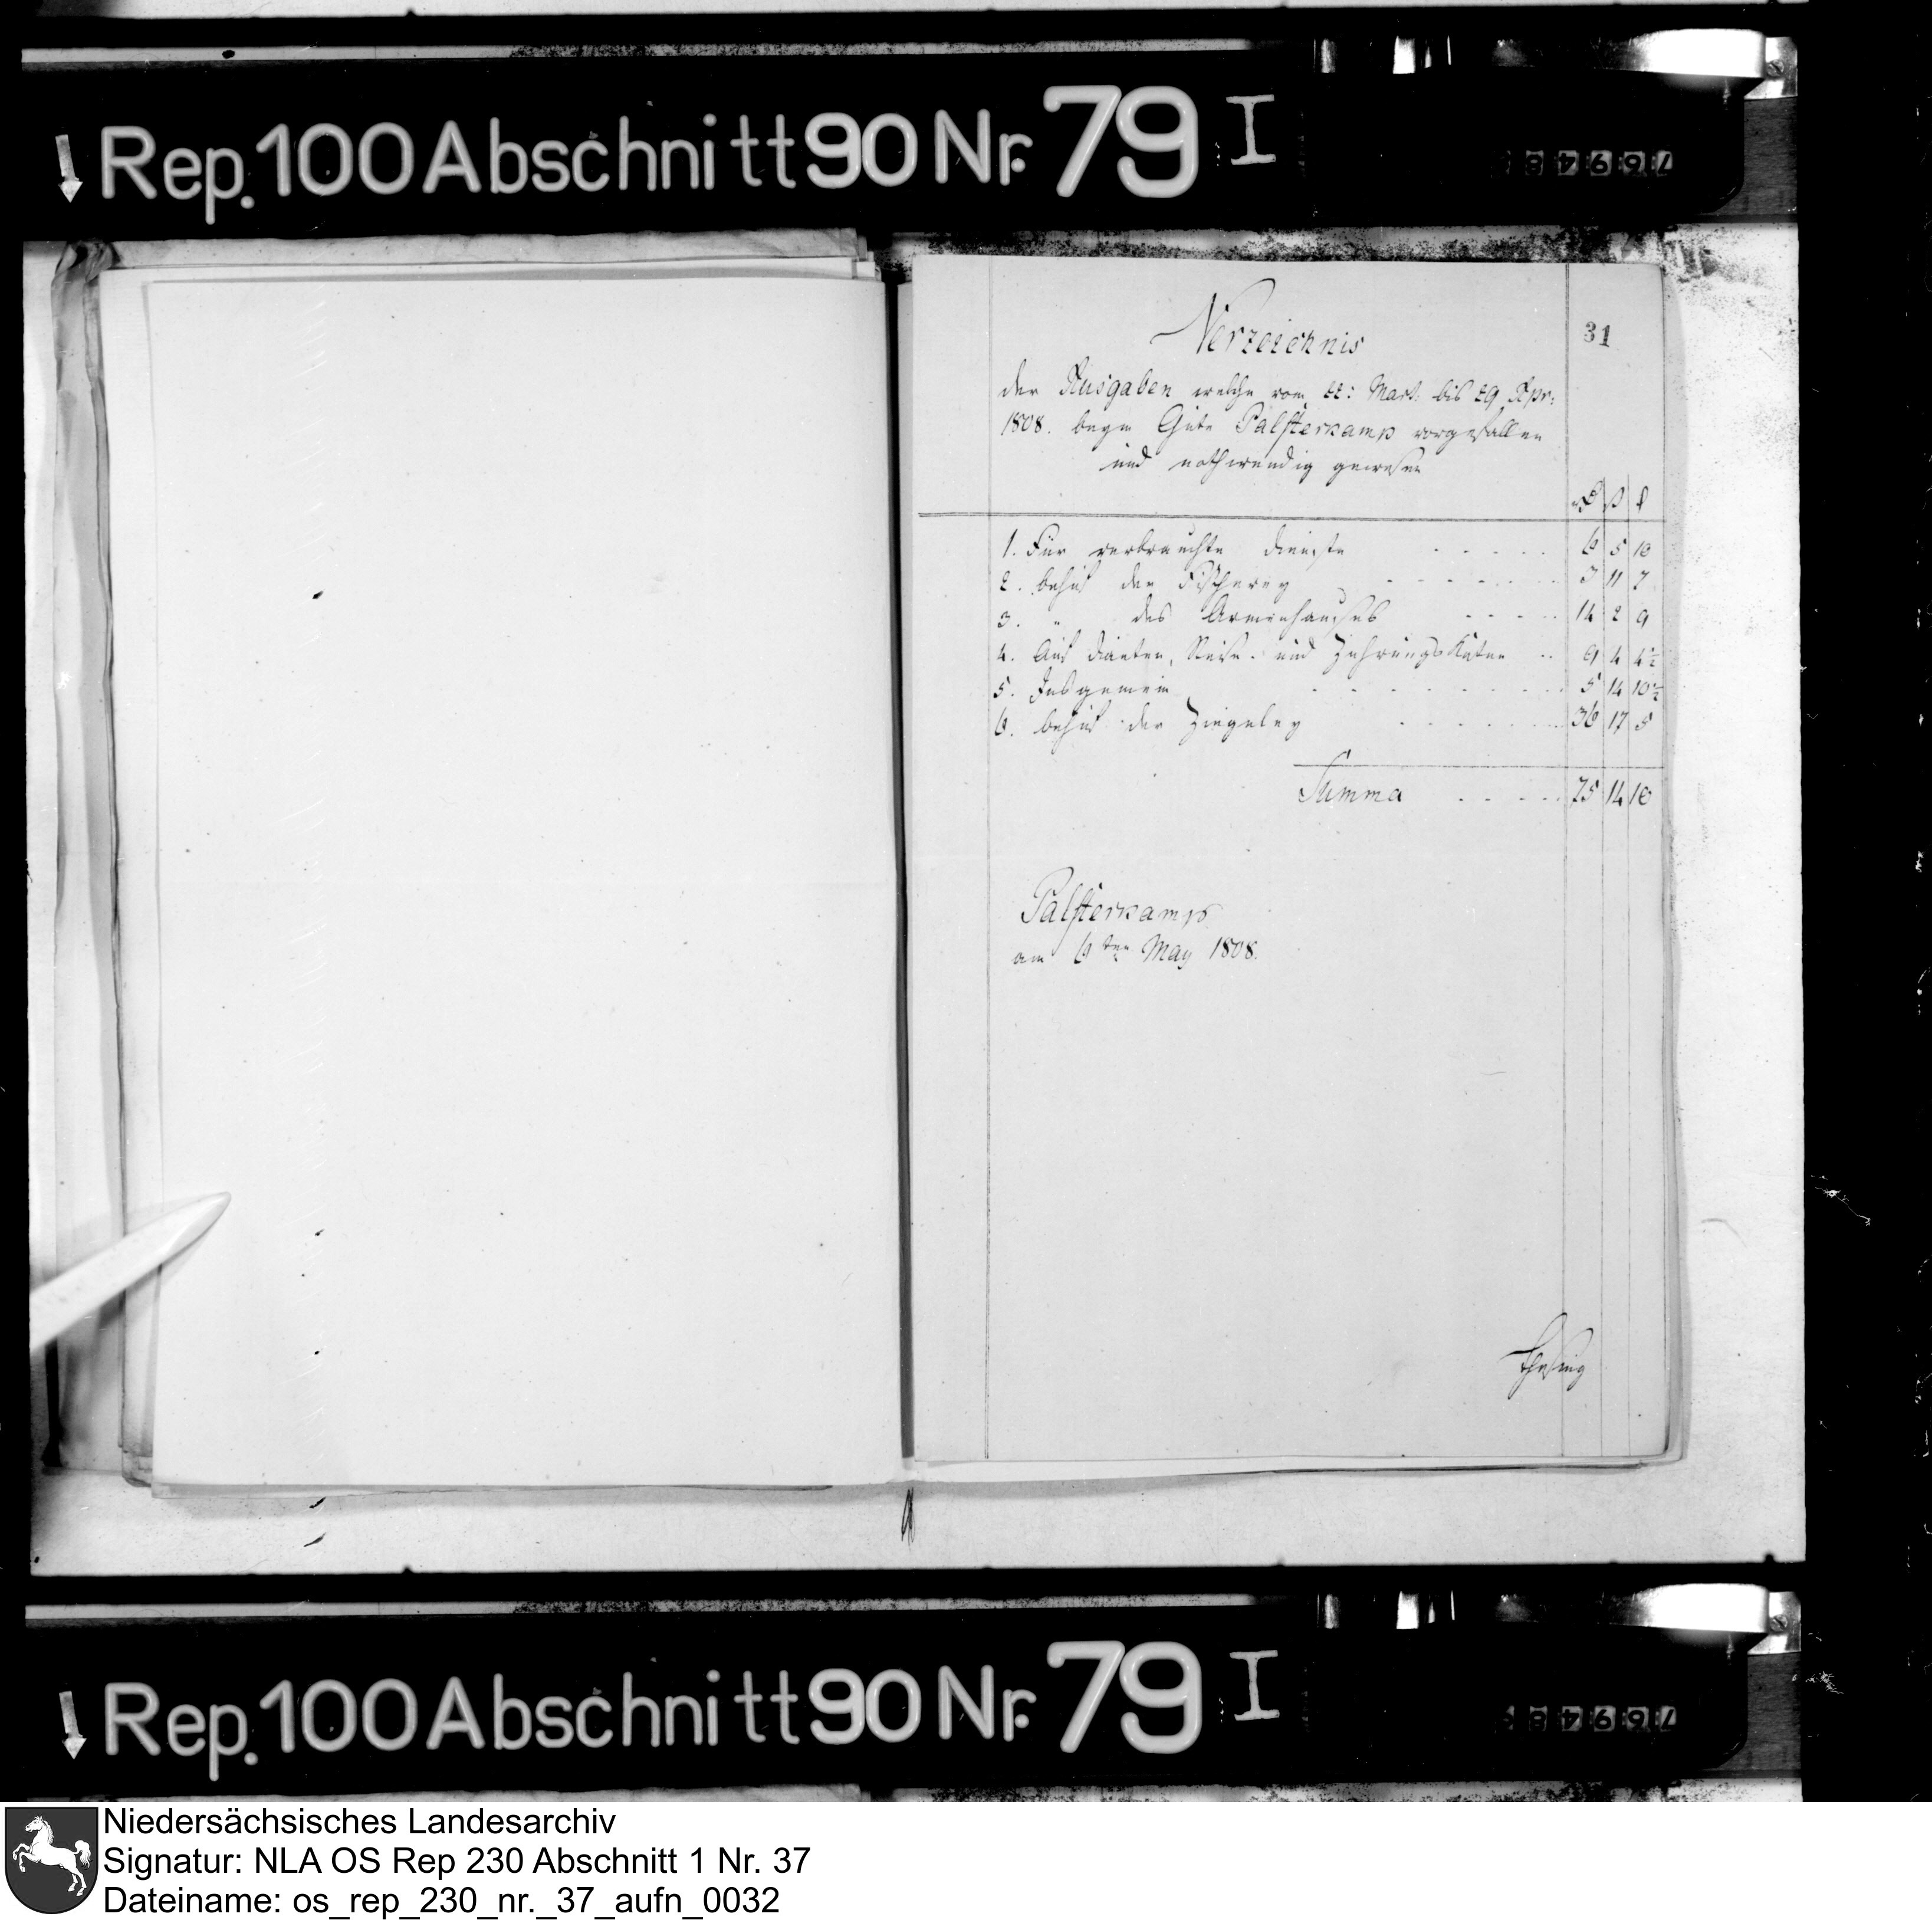 ↓ Rep. 100 Abschnitt 90 Nr. 79 I
31
Verzeichnis
der Ausgaben welche vom 22: Mart: bis 29 Apr:
1808. beym Gute Palsterkamp vorgefallen
und nothwendig gewesen
1. Für verbrauchte Dienste - - - - - 6 5 10
2. behuf der Fischerey - - - - - - 3 11 7
3. " des Armenhauses - - - - 14 2 9
4. Auf Diaeten, Reise- und Zehrungs Kosten - - 9 4 4½
5. Insgemein - - - - - - - - 5 14 10½
6. behuf der Ziegeley - - - - - - 36 17 5
Summa - - - - 75 14 10
Palsterkamp
am 6ten May 1808.
↓ Rep. 100 Abschnitt 90 Nr. 79 I
Niedersächsisches Landesarchiv
Signatur: NLA OS Rep 230 Abschnitt 1 Nr. 37
Dateiname: os_rep_230_nr._37_aufn_0032